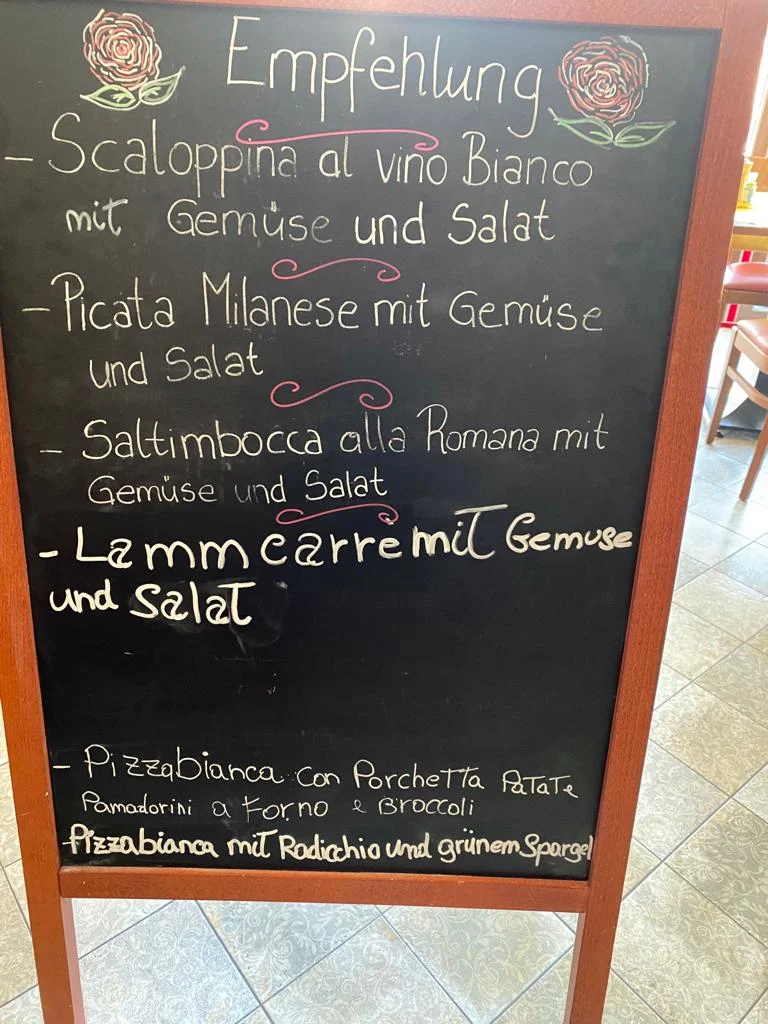 Empfehlung
- Scaloppina al vino Bianco
mit Gemüse und Salat
- Picata Milanese mit Gemüse
und Salat
- Saltimbocca alla Romana mit
Gemüse und Salat
- Lammcarrè mit Gemuse
und Salat
- Pizzabianca con Porchetta Patate
Pamadorini a Forno e Broccoli
Pizzabianca mit Radicchio und grünem Spargel